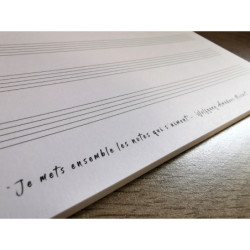 "Je mets ensemble les notes qui s'aiment" - Wolfgang Amadeus Mozart